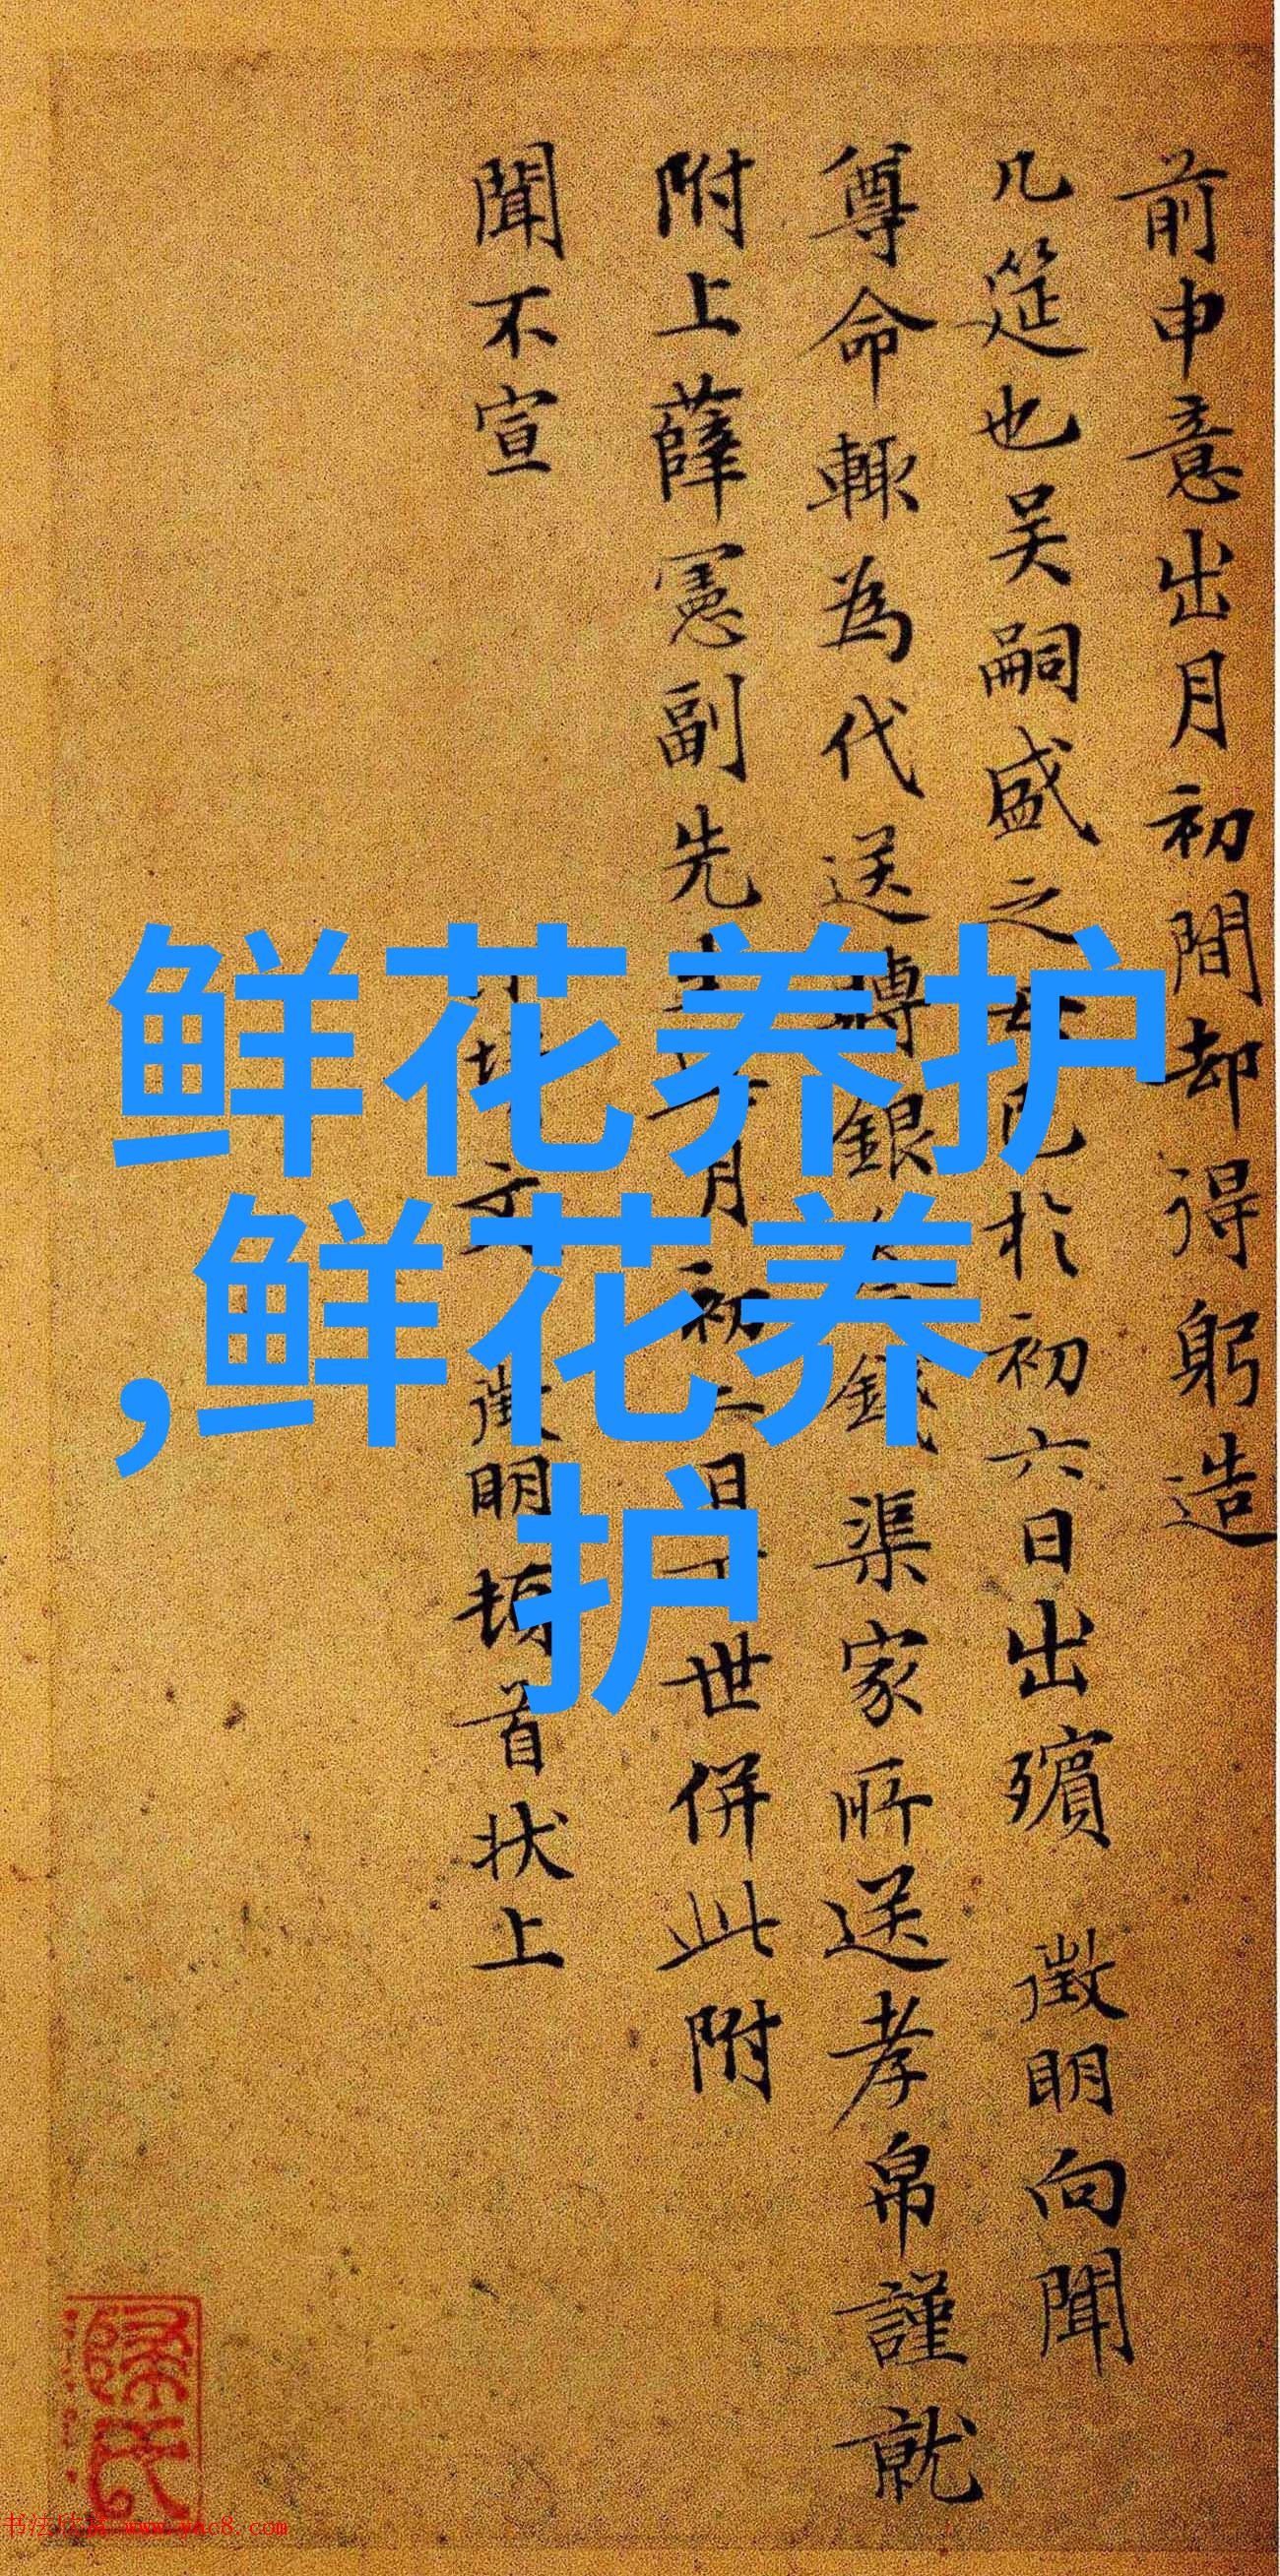 前申意出月初間却得躬造
几筵也吴嗣盛之母已於初六日出殯 徵明向聞
尊命輒為代送賻銀 錢渠家所送孝帛謹就
附上薛憲副先 月初二日 世併此附
聞不宣
徵明頓首状上
鲜花养护
,鲜花养
护
书法欣赏 www.yac8.com